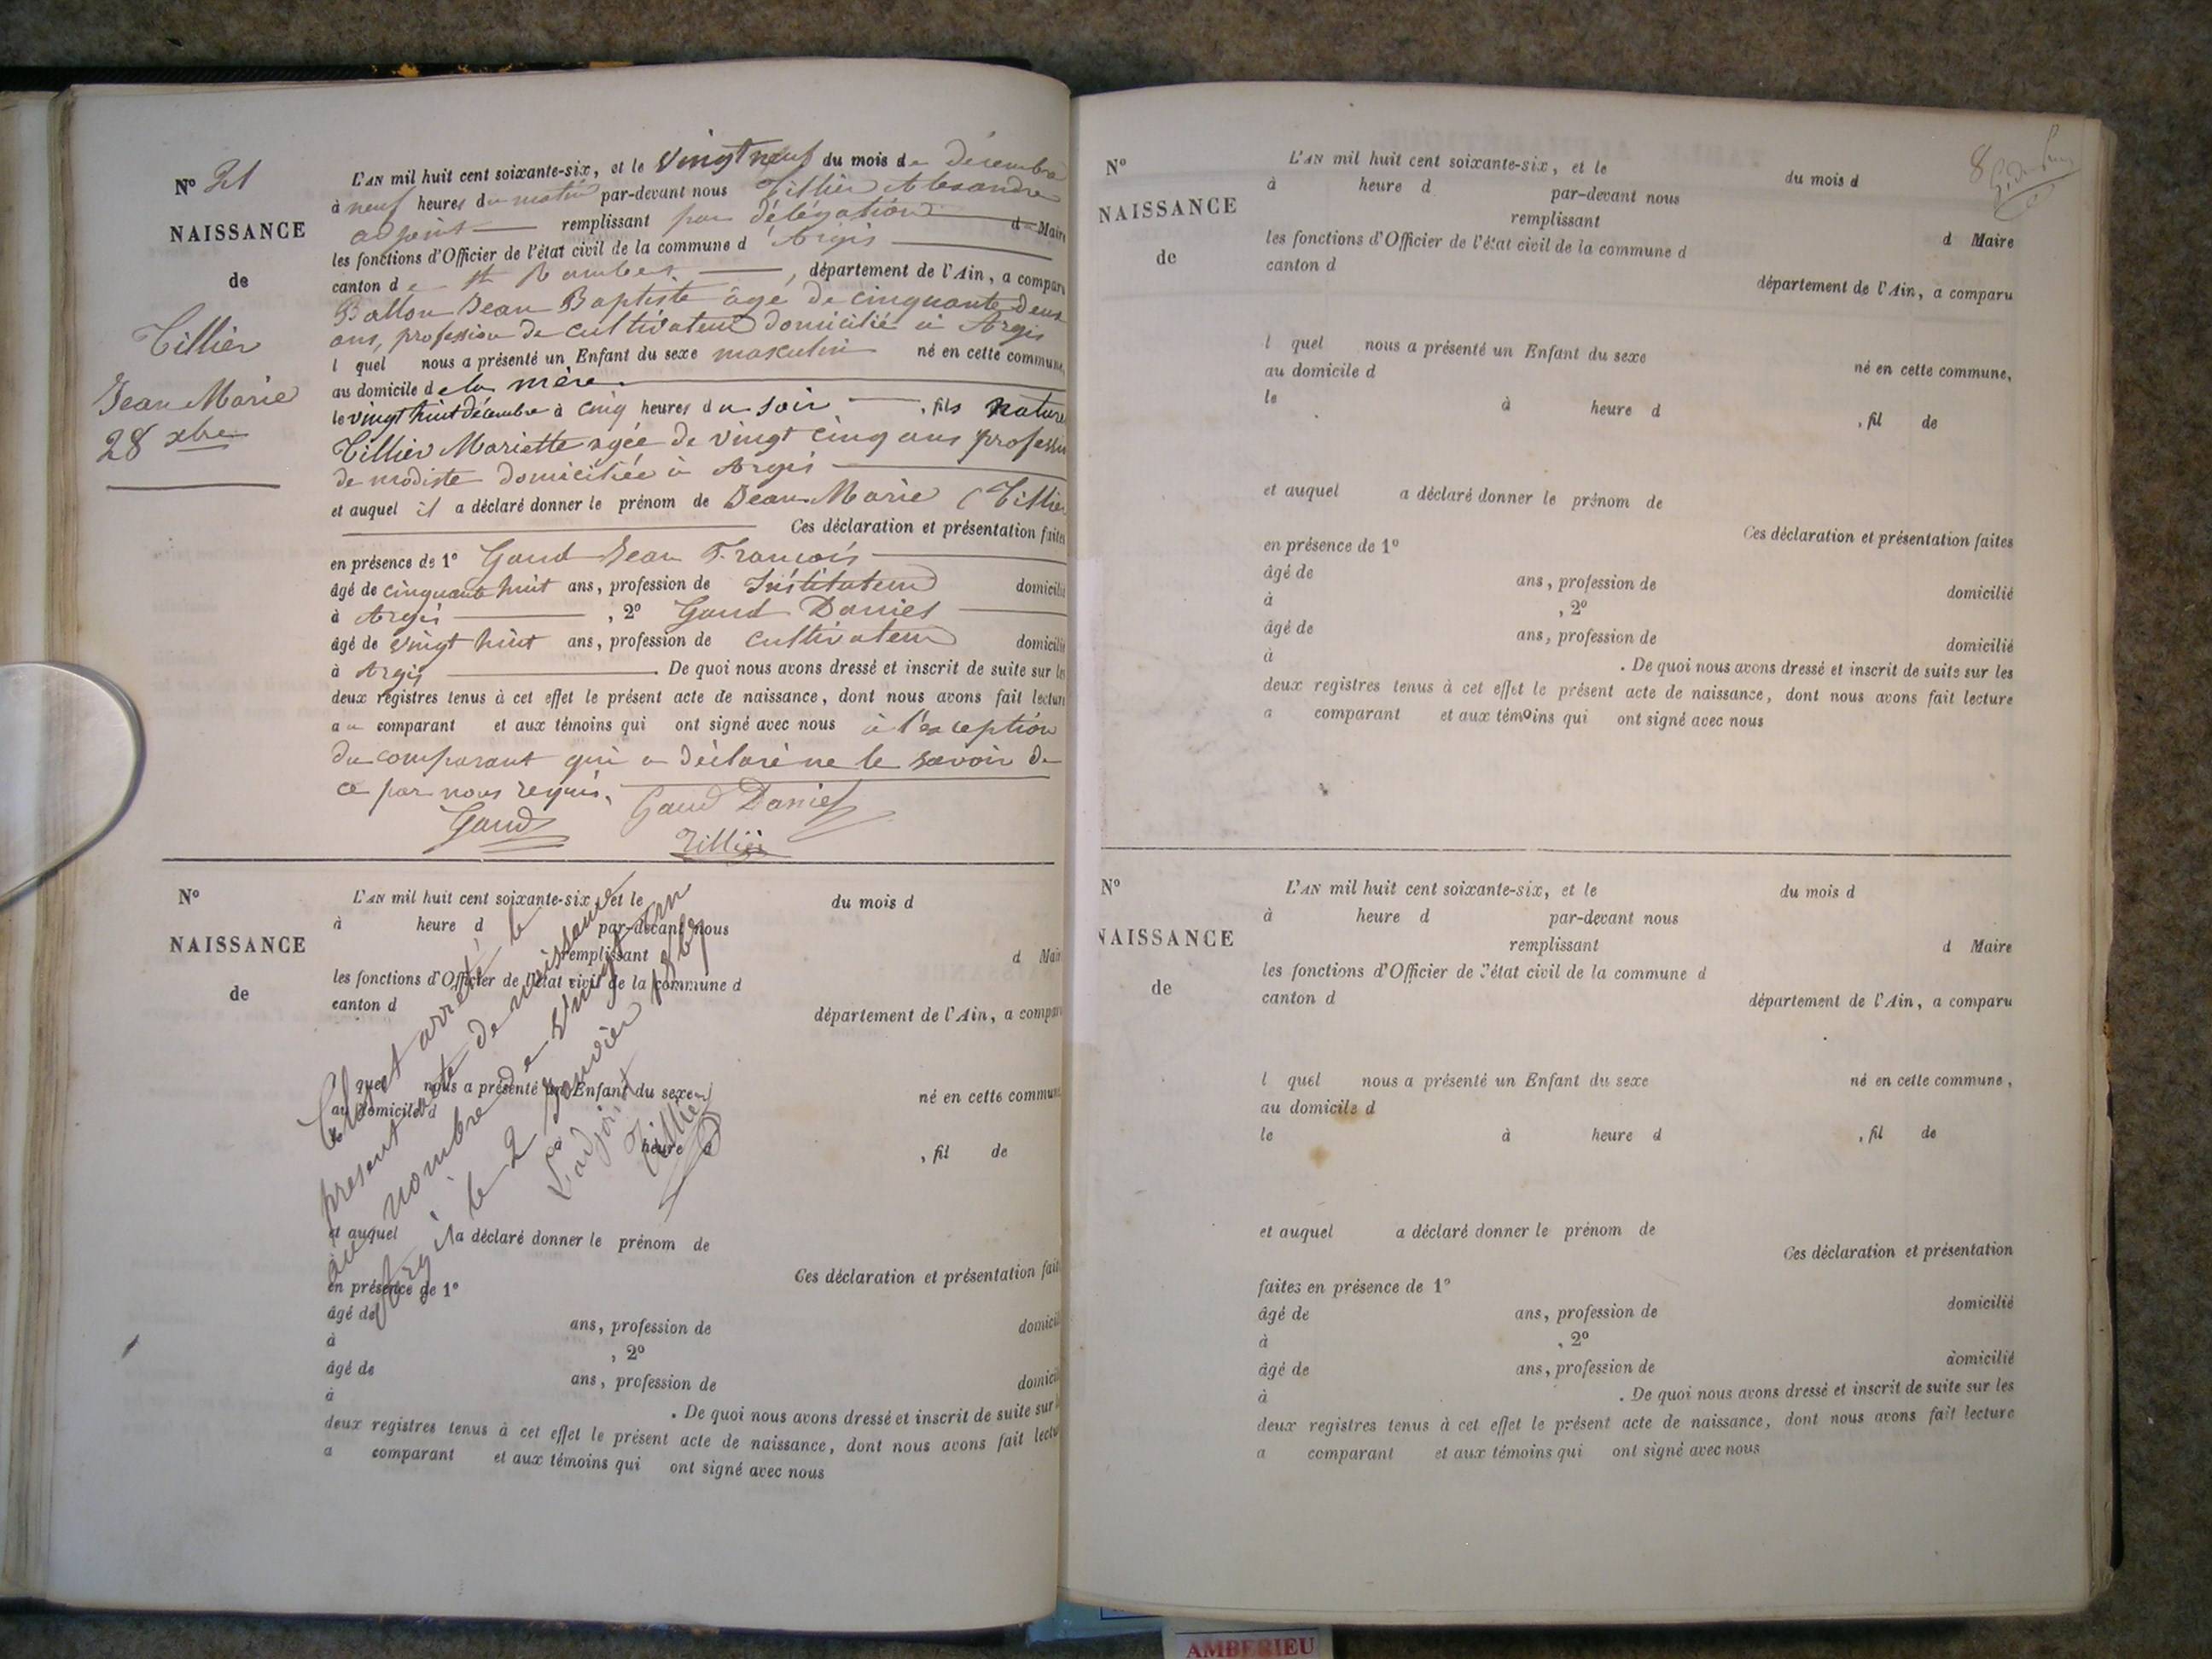 N° 21
NAISSANCE
de
Tillier
Jean Marie
28 xbre
L'AN mil huit cent soixante-six, et le vingt neuf du mois de décembre
à neuf heures du matin par-devant nous Tillier Alexandre
adjoint remplissant par délégation d Maire
les fonctions d'Officier de l'état civil de la commune d'Argis
canton de St Rambert, département de l'Ain, a comparu
Ballon Jean Baptiste âgé de cinquante deux
ans, profession de cultivateur domicilié à Argis
l quel nous a présenté un Enfant du sexe masculin né en cette commune,
au domicile de la mère
le vingt huit décembre à cinq heures du soir, fils naturel
Tillier Mariette agée de vingt cinq ans profession
de modiste domiciliée à Argis
et auquel il a déclaré donner le prénom de Jean Marie (Tillier
Ces déclaration et présentation faites
en présence de 1° Gaud Jean François
âgé de cinquante huit ans, profession de Instituteur domicilié
à Argis, 2° Gaud Daniel
âgé de vingt huit ans, profession de cultivateur domicilié
à Argis. De quoi nous avons dressé et inscrit de suite sur les
deux registres tenus à cet effet le présent acte de naissance, dont nous avons fait lecture
au comparant et aux témoins qui ont signé avec nous à l'exception
du comparant qui a déclaré ne le savoir de
ce par nous requis.
Gaud Gaud Daniel
Tillier
N°
NAISSANCE
de
L'AN mil huit cent soixante-six, et le du mois d
à heure d par-devant nous
remplissant d Maire
les fonctions d'Officier de l'état civil de la commune d
canton d
département de l'Ain, a comparu
l quel nous a présenté un Enfant du sexe né en cette commune
au domicile d
le à heure d , fil de
et auquel a déclaré donner le prénom de
Ces déclaration et présentation faites
en présence de 1°
âgé de ans, profession de domicilié
à , 2°
âgé de ans, profession de domicilié
à . De quoi nous avons dressé et inscrit de suite sur les
deux registres tenus à cet effet le présent acte de naissance, dont nous avons fait lecture
a comparant et aux témoins qui ont signé avec nous
Clos et arrêté le
présent acte de naissance
au nombre de vingt un
Argis le 2 Janvier 1867
L'adjoint
Tillier
8
N°
NAISSANCE
de
L'AN mil huit cent soixante-six, et le du mois d
à heure d par-devant nous
remplissant d Maire
les fonctions d'Officier de l'état civil de la commune d
canton d département de l'Ain, a comparu
l quel nous a présenté un Enfant du sexe né en cette commune,
au domicile d
le à heure d , fil de
et auquel a déclaré donner le prénom de
Ces déclaration et présentation faites
en présence de 1°
âgé de ans, profession de domicilié
à , 2°
âgé de ans, profession de domicilié
à . De quoi nous avons dressé et inscrit de suite sur les
deux registres tenus à cet effet le présent acte de naissance, dont nous avons fait lecture
a comparant et aux témoins qui ont signé avec nous
N°
NAISSANCE
de
L'AN mil huit cent soixante-six, et le du mois d
à heure d par-devant nous
remplissant d Maire
les fonctions d'Officier de l'état civil de la commune d
canton d département de l'Ain, a comparu
l quel nous a présenté un Enfant du sexe né en cette commune,
au domicile d
le à heure d , fil de
et auquel a déclaré donner le prénom de
Ces déclaration et présentation
faites en présence de 1°
âgé de ans, profession de domicilié
à , 2°
âgé de ans, profession de domicilié
à . De quoi nous avons dressé et inscrit de suite sur les
deux registres tenus à cet effet le présent acte de naissance, dont nous avons fait lecture
a comparant et aux témoins qui ont signé avec nous
AMBERIEU